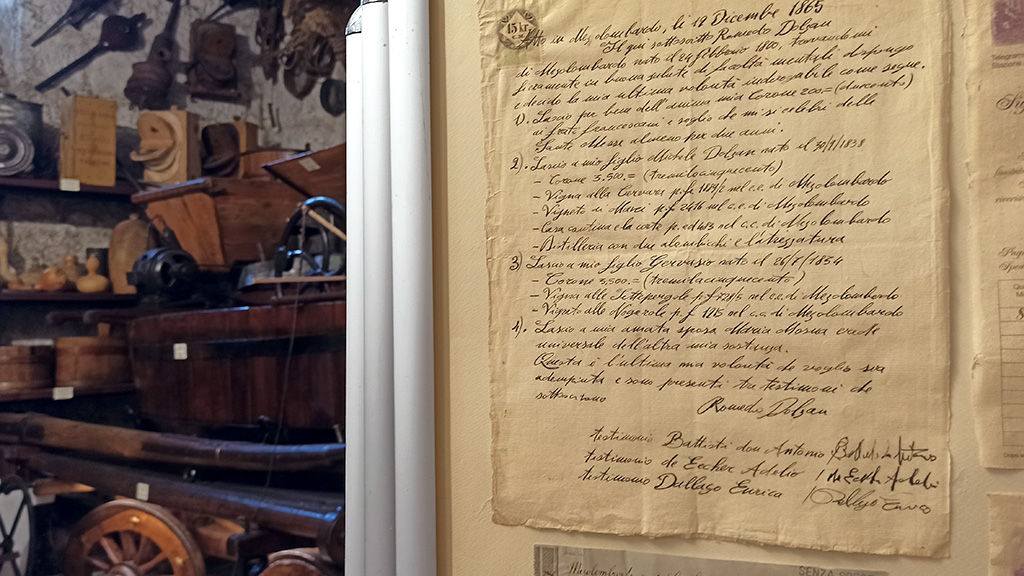 15 kr
Atto in Mezolombardo, li 12 Dicembre 1865
Il qui sottoscritto Romedio Dolzan
di Mezolombardo nato il 24 febbraio 1800, trovandomi
sicuramente in buona salute di facoltà mentali dispongo
e decido la mia ultima volontà inderogabile come segue.
1). Lascio per bene dell'anima mia Corone 200.= (duecento)
ai frati francescani e voglio che mi si celebri delle
Sante Messe almeno per due anni.
2). Lascio a mio figlio Michele Dolzan nato il 30/9/1838
- Corone 3.500.= (tremilacinquecento)
- Vigna alla Cervara p.f. nel c.c. di Mezolombardo
- Vigneto in Marci p.f. 24/16 nel c.c. di Mezolombardo
- Casa cantina e la corte p. ed. nel c.c. di Mezolombardo
- Distilleria con due alambicchi e l'attrezzatura
3) Lascio a mio figlio Gervasio nato il 26/8/1854
- Corone 3,500.= (tremilacinquecento)
- Vigna alle Settepergole p.f. nel c.c. di Mezolombardo
- Vigneto alle Nogerole p.f. nel c.c. di Mezolombardo
4). Lascio a mia amata sposa Maria Mosna erede
universale dell'altra mia sostanza.
Questa è l'ultima ma volontà che voglio sia
adempiuta e sono presenti tre testimoni che
sottoscrivono
Romedio Dolzan
testimonio Battisti don Antonio
testimonio de Eccher Adelio
testimonio Dallago Enrico
Mezolombardo
SENZA